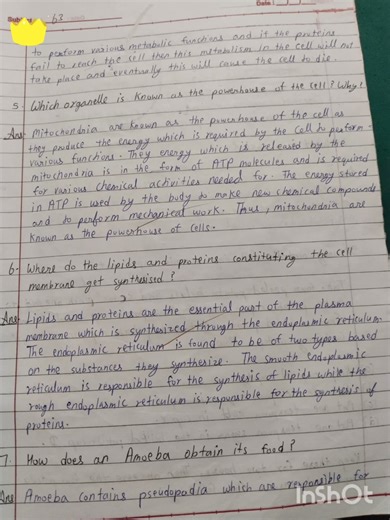 63
Date:
to perform various metabolic functions and if the proteins
fail to reach the cell then this metabolism in the cell will not
take place and eventually this will cause the cell to die
5. Which organelle is known as the powerhouse of the cell? Why?
Ans Mitochondria are known as the powerhouse of the cell as
they produce the energy which is required by the Cell to perform
various functions. They energy which is released by the
mitochondria is in the form of ATP molecules and is required
for various chemical activities needed for. The energy stored
in ATP is used by the body to make new chemical compounds
and to perform mechanical work. Thus, mitochondria are
known as the powerhouse of cells.
6. Where do the lipids and proteins constituting the cell
membrane get synthesised?
Ans Lipids and proteins are the essential part of the plasma
membrane which is synthesized through the enduplasmic reticulum.
The endoplasmic reticulum is found to be of two types based
on the substances they synthesize. The smooth Endoplasmic
reticulum is responsible for the synthesis of lipids while the
rough endoplasmic reticulum is responsible for the synthesis of
proteins.
7. How does an Amoeba obtain its food?
Ans Amoeba contains pseudopodia which are responsible for
InShOt